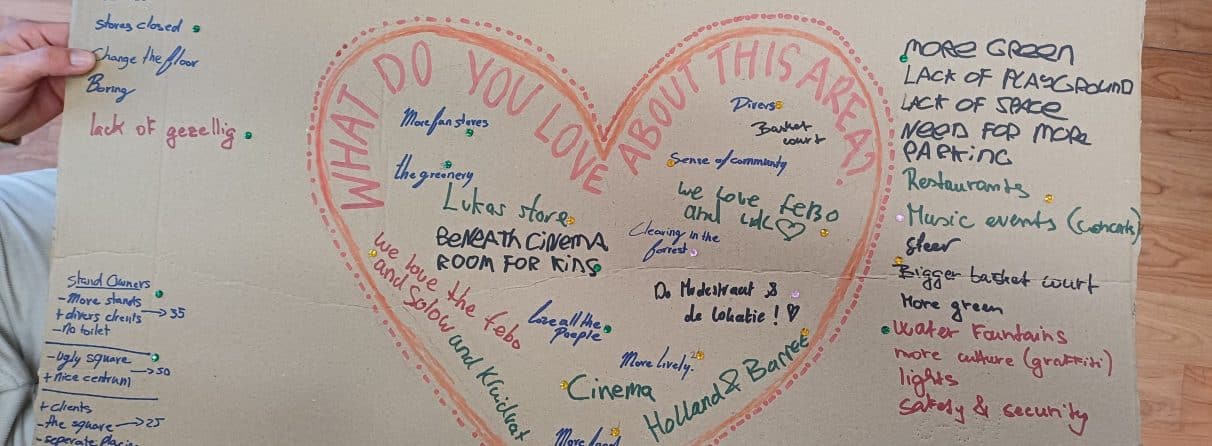 stores closed
Change the floor
Boring
lack of gezellig
Stand Owners
- More stands
+ divers clients → 35
- no toilet
- Ugly square
→ 50
+ nice centrum
+ clients
- the square → 25
- seperate
WHAT DO YOU LOVE ABOUT THIS AREA?
More fun stores
the greenery
Lukas store
BENEATH CINEMA
ROOM FOR KIDS
we love the febo
and Solow and Kruidvat
Love all the
people
Cinema
Divers
Basket
court
Sense of community
we love FEBO
and
Clearing in the
forrest
De Modestraat &
de lokatie!
More lively
Holland & Barret
More food
MORE GREEN
LACK OF PLAYGROUND
LACK OF SPACE
NEED FOR MORE
PARKING
Restaurants
Music events (concerts)
sfeer
Bigger basket court
More green
Water Fountains
more culture (graffiti)
lights
safety & security